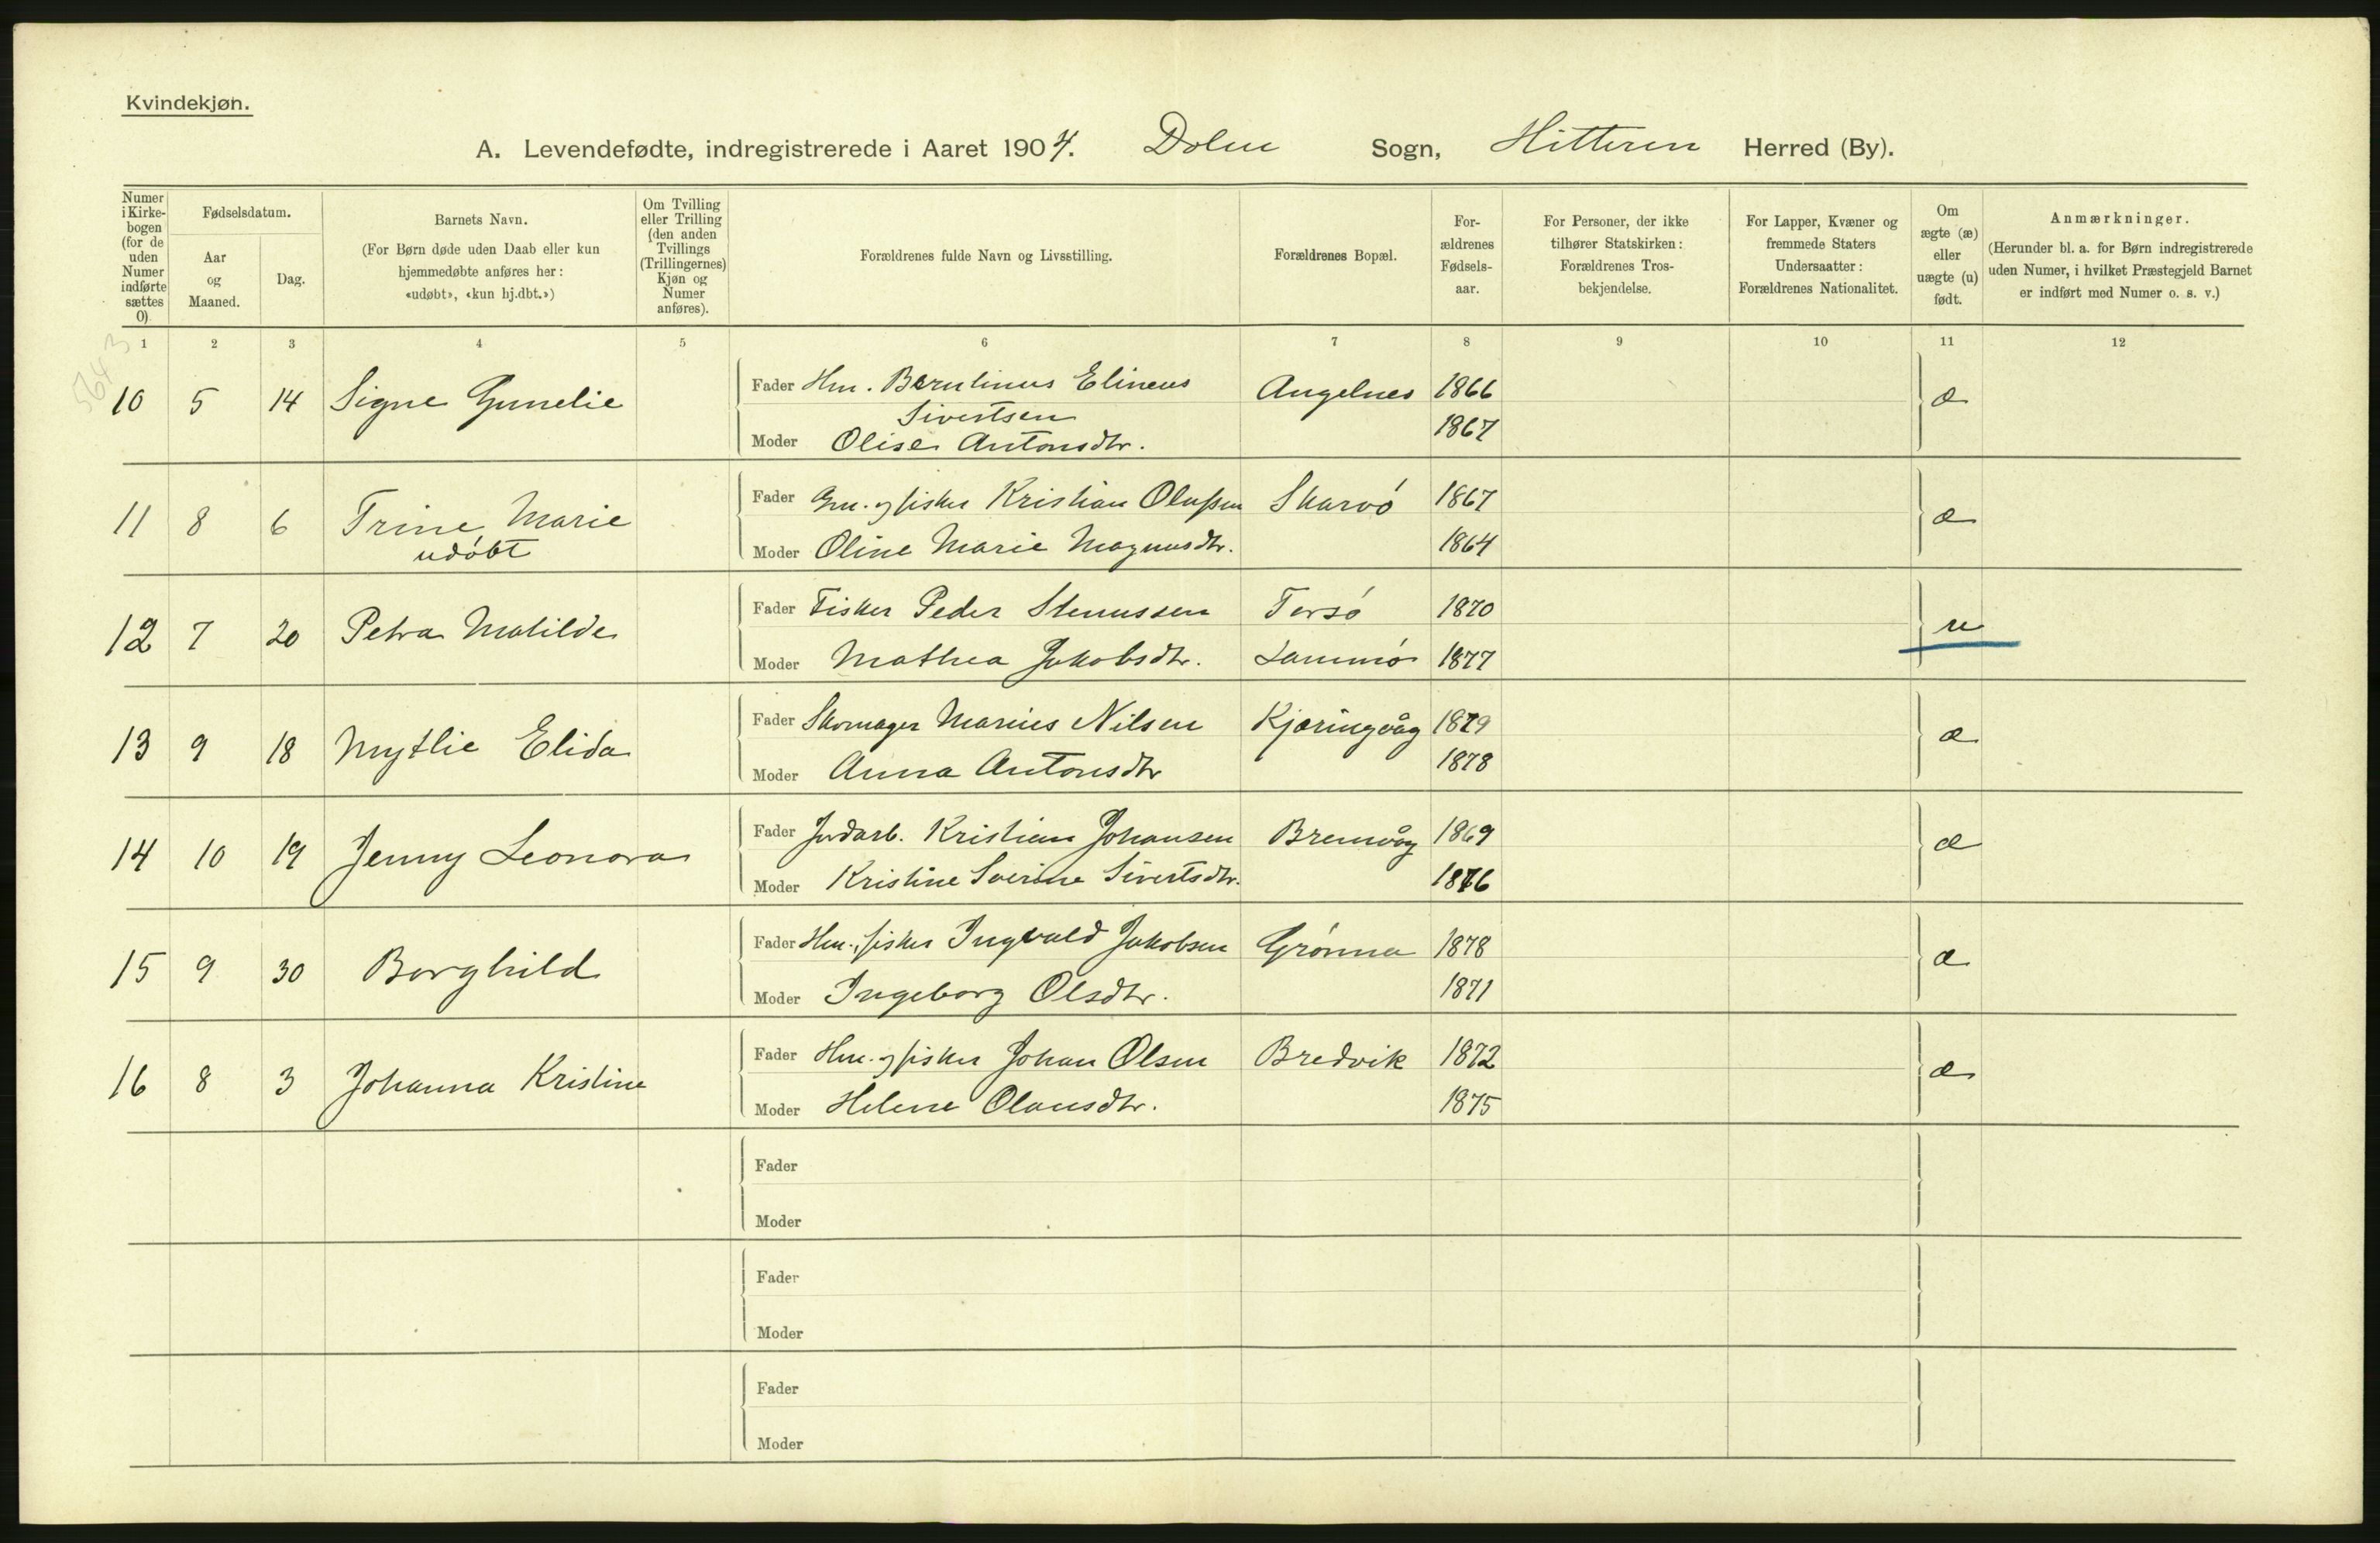 Kvindekjøn.
A. Levendefødte, indregistrerede i Aaret 1904. Dolm Sogn, Hitteren Herred (By).
Numer i Kirke-bogen (for de uden Numer indførte sættes 0).
Fødselsdatum.
Aar og Maaned.
Dag.
Barnets Navn.
(For Børn døde uden Daab eller kun
hjemmedøbte anføres her:
«udøbt», «kun hj.dbt.»)
Om Tvilling
eller Trilling
(den anden
Tvillings
(Trillingernes)
Kjøn og
Numer
anføres).
Forældrenes fulde Navn og Livsstilling.
Forældrenes Bopæl.
For-
ældrenes
Fødsels-
aar.
For Personer, der ikke
tilhører Statskirken:
Forældrenes Tros-
bekjendelse.
For Lapper, Kvæner og
fremmede Staters
Undersaatter:
Forældrenes Nationalitet.
Om
ægte (æ)
eller
uægte (u)
født.
Anmærkninger.
(Herunder bl. a. for Børn indregistrerede
uden Numer, i hvilket Præstegjeld Barnet
er indført med Numer o. s. v.)
1 2 3 4 5 6 7 8 9 10 11 12
5643
10 5 14 Signe Gunelie Fader Hm. Berntinus Elineus Angelnes 1866 æ
Sivertsen
Moder Olise Antonsdtr. 1867
11 8 6 Trine Marie Fader Gm. og fisker Kristian Olufsen Skarvö 1867 æ
udöbt
Moder Oline Marie Magnusdtr. 1864
12 7 20 Petra Matilde Fader Fisker Peder Stenussen Tersö 1870 u
Moder Mathea Jakobsdtr. Lammö 1877
13 9 18 Mytlie Elida Fader Skomager Marius Nilsen Kjæringvåg 1879 æ
Moder Anna Antonsdtr 1878
14 10 19 Jenny Leonora Fader Jordarb. Kristian Johansen Bremvåg 1869 æ
Moder Kristine Sverine Sivertsdtr. 1876
15 9 30 Borghild Fader Hm., fisker Ingvald Jakobsen Grönna 1878 æ
Moder Ingeborg Olsdtr. 1871
16 8 3 Johanna Kristine Fader Hm. og fisker Johan Olsen Bredvik 1872 æ
Moder Helene Olausdtr. 1875
Fader
Moder
Fader
Moder
Fader
Moder